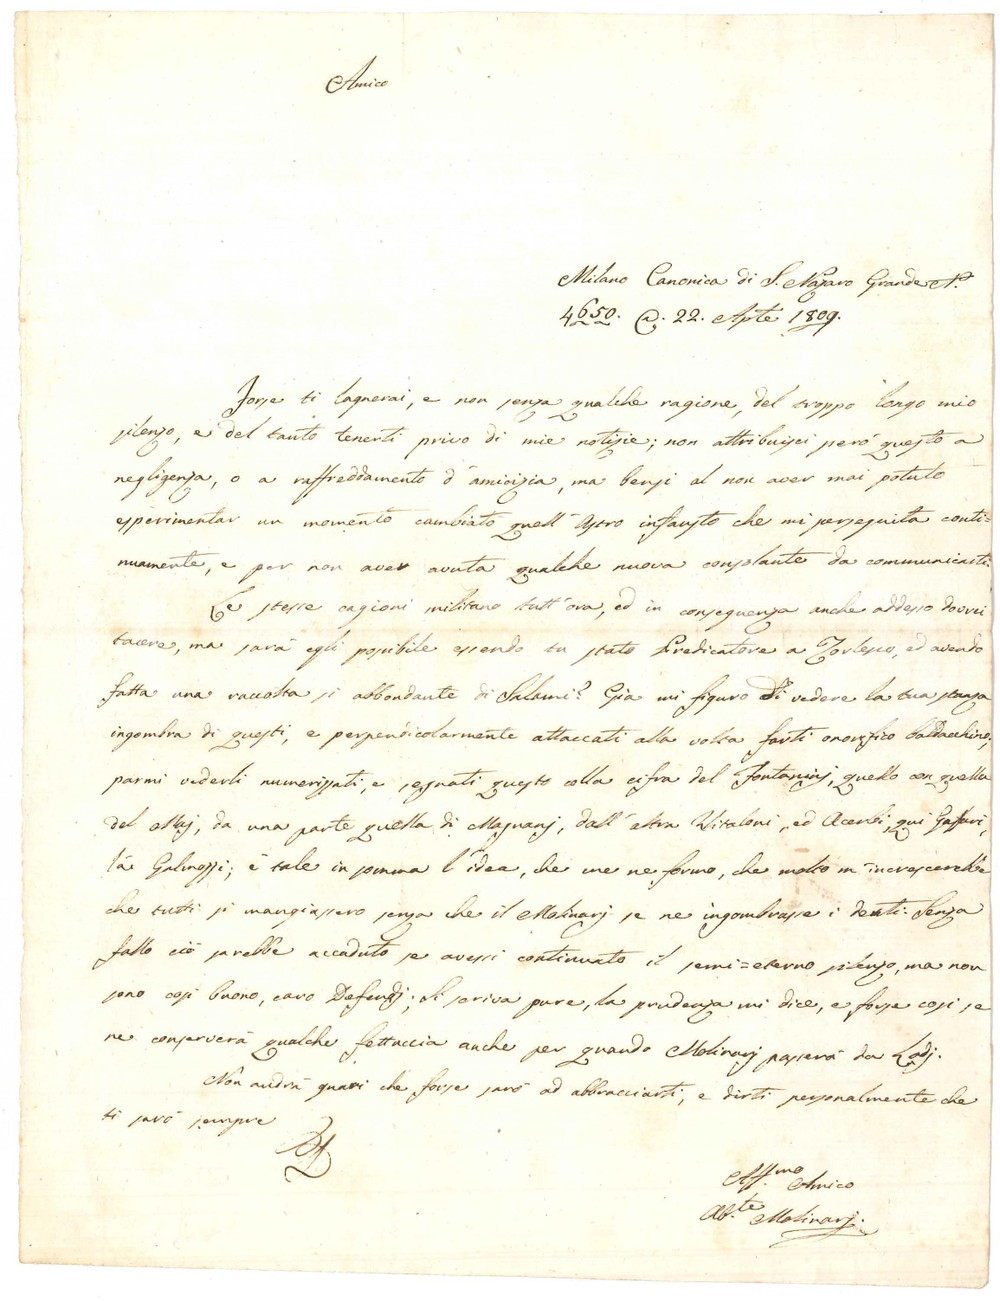 Amico
Milano Canonica di S. Nazaro Grande N.º
4650. @. 22. Aple 1809.
Forse ti lagnerai, e non senza qualche ragione, del troppo longo mio
silenzo, e del tanto tenerti privo di mie notizie; non attribuisci peró questo a
negligenza, o a raffreddamento d'amicizia, ma bensi al non aver mai potuto
esperimentar un momento cambiato quell'Astro infausto che mi perseguita conti=
nuamente, e per non aver avuta qualche nuova consolante da communicarti.
Le stesse cagioni militano tutt'ora, ed in conseguenza anche addesso dovrei
tacere, ma sará egli possibile essendo tu stato Predicatore a Zorlesco, ed avendo
fatta una raccolta si abbondante di Salami? Giá mi figuro di vedere la tua stanza
ingombra di questi, e perpendicolarmente attaccati alla volta farti onorifico baldacchino;
parmi vederli numerizzati, e segnati questo colla cifra del Fontaninj, quello con quella
del Maj, da una parte quella di Magnanj, dall'altra Vitaloni, ed Acerbi, qui Gaffuri,
lá Galmozzi; é tale in somma l'idea, che me ne formo, che molto m'increscerebbe
che tutti si mangiassero senza che il Molinarj se ne ingombrasse i denti. Senza
fallo ció sarebbe accaduto se avessi continuato il semi=eterno silenzo, ma non
sono cosi buono, caro Defendj; si scriva pure, la prudenza mi dice, e forse cosi se
ne conserverá qualche fettuccia anche per quando Molinarj passerá da Lodj.
Non andrá guari che forse saró ad abbracciarti, e dirti personalmente che
ti saró sempre
Aff.mo Amico
Ab.te Molinarj.